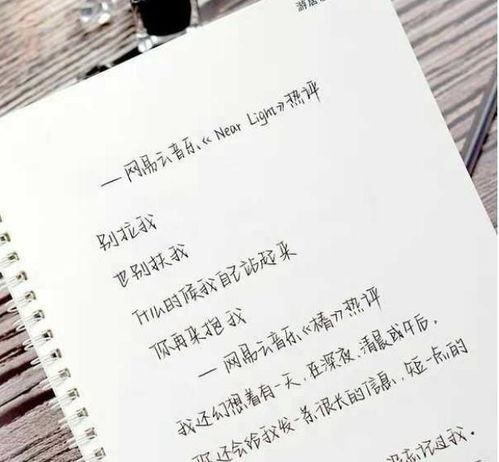 ——网易云音乐《Near Light》热评
别拉我
也别扶我
我自己站起来
你再来抱我
——网易云音乐《椿》热评
我还幻想着有一天，在深夜、清晨或午后，
你还会给我发一条很长的信息，短一点的
没忘记过我。